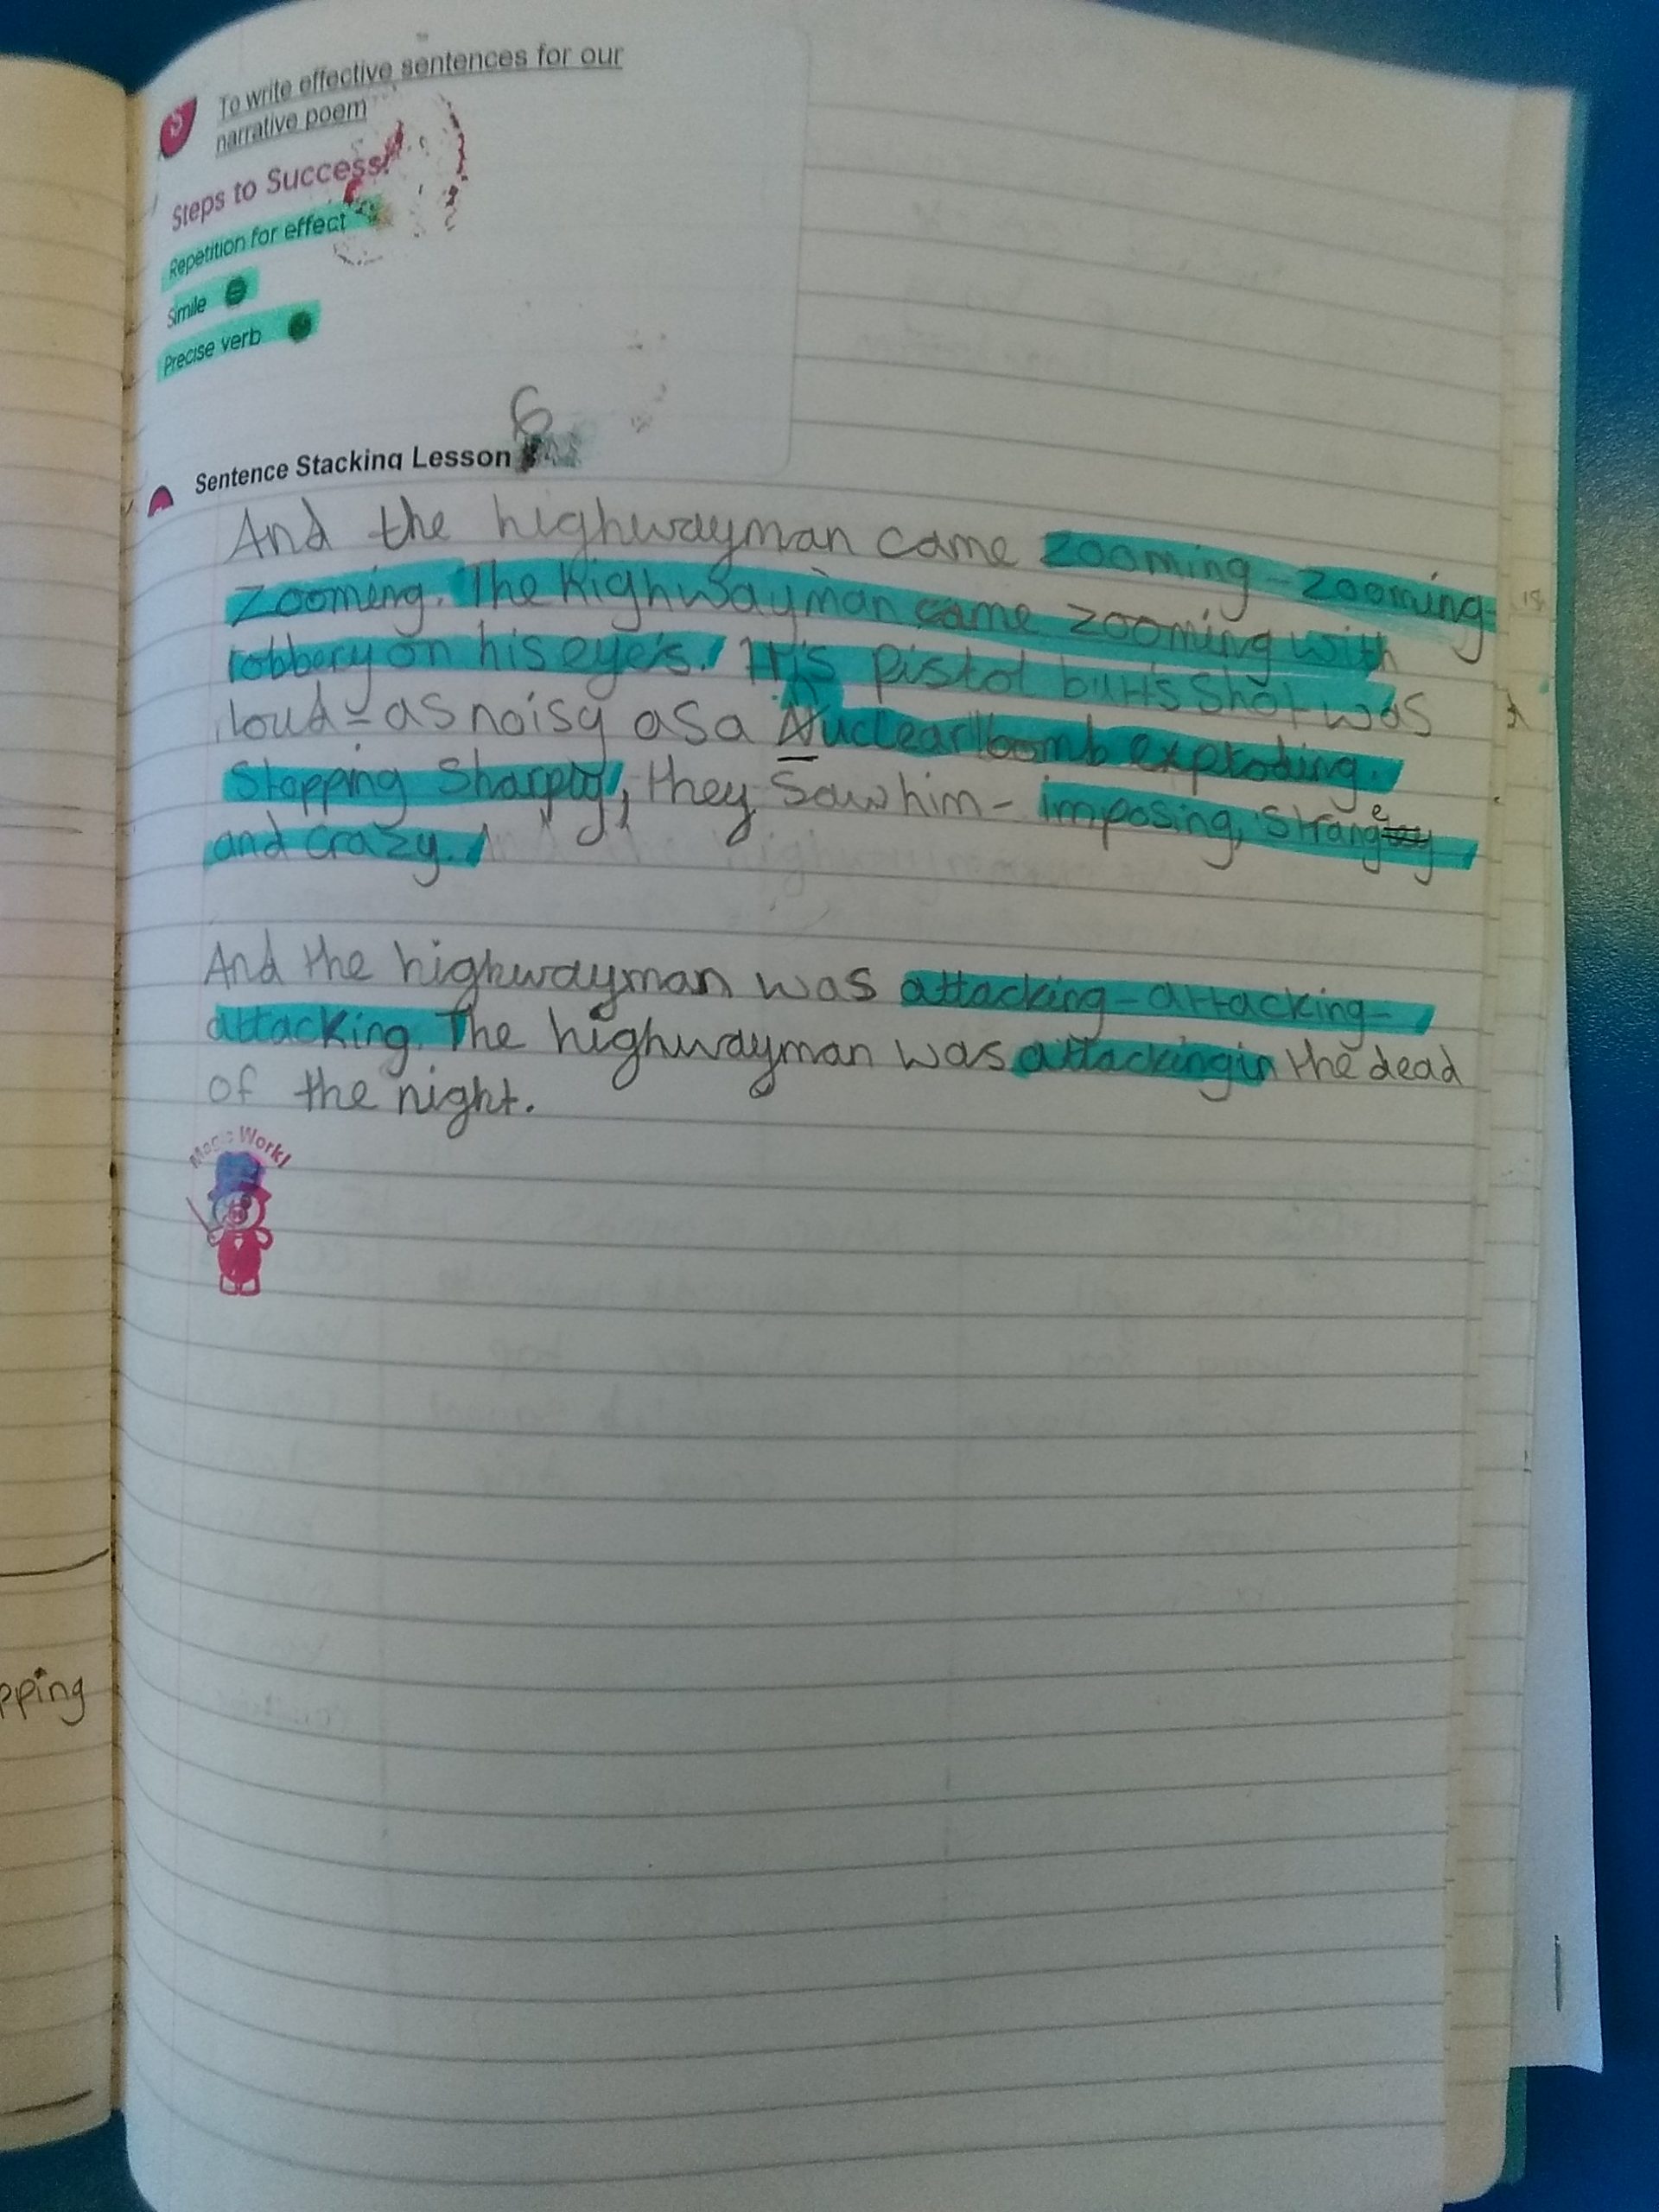 To write effective sentences for our
narrative poem
Steps to Success!
Repetition for effect
Simile
Precise verb
6
Sentence Stacking Lesson
And the highwayman came zooming - zooming-
zooming. The highwayman came zooming with
robbery on his eye's. His pistol butt's shot was
loud - as noisy as a Nuclear bomb exploding.
Stopping Sharply, they saw him - imposing, strange
and crazy.
And the highwayman was attacking - attacking-
attacking. The highwayman was attacking in the dead
of the night.
Magic Work!
pping